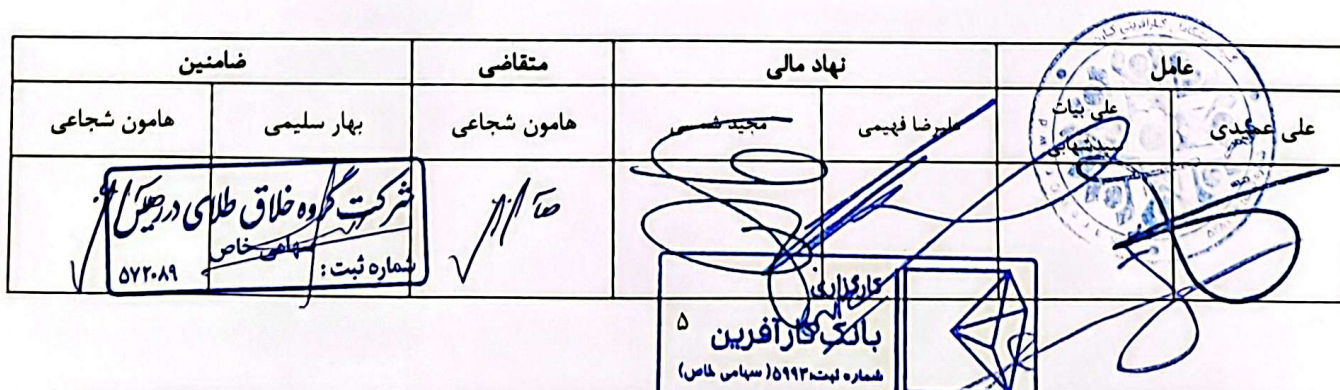 عامل نهاد مالی متقاضی ضامنین
علی عمیدی علی بیات علیرضا فهیمی مجید هامون شجاعی بهار سلیمی هامون شجاعی
شرکت گروه خلاق طلای
سهامی خاص
شماره ثبت : ۵۷۲۰۸۹
کارگزاری
بانک کارآفرین
شماره ثبت ۵۹۹۳ (سهامی خاص)
۵